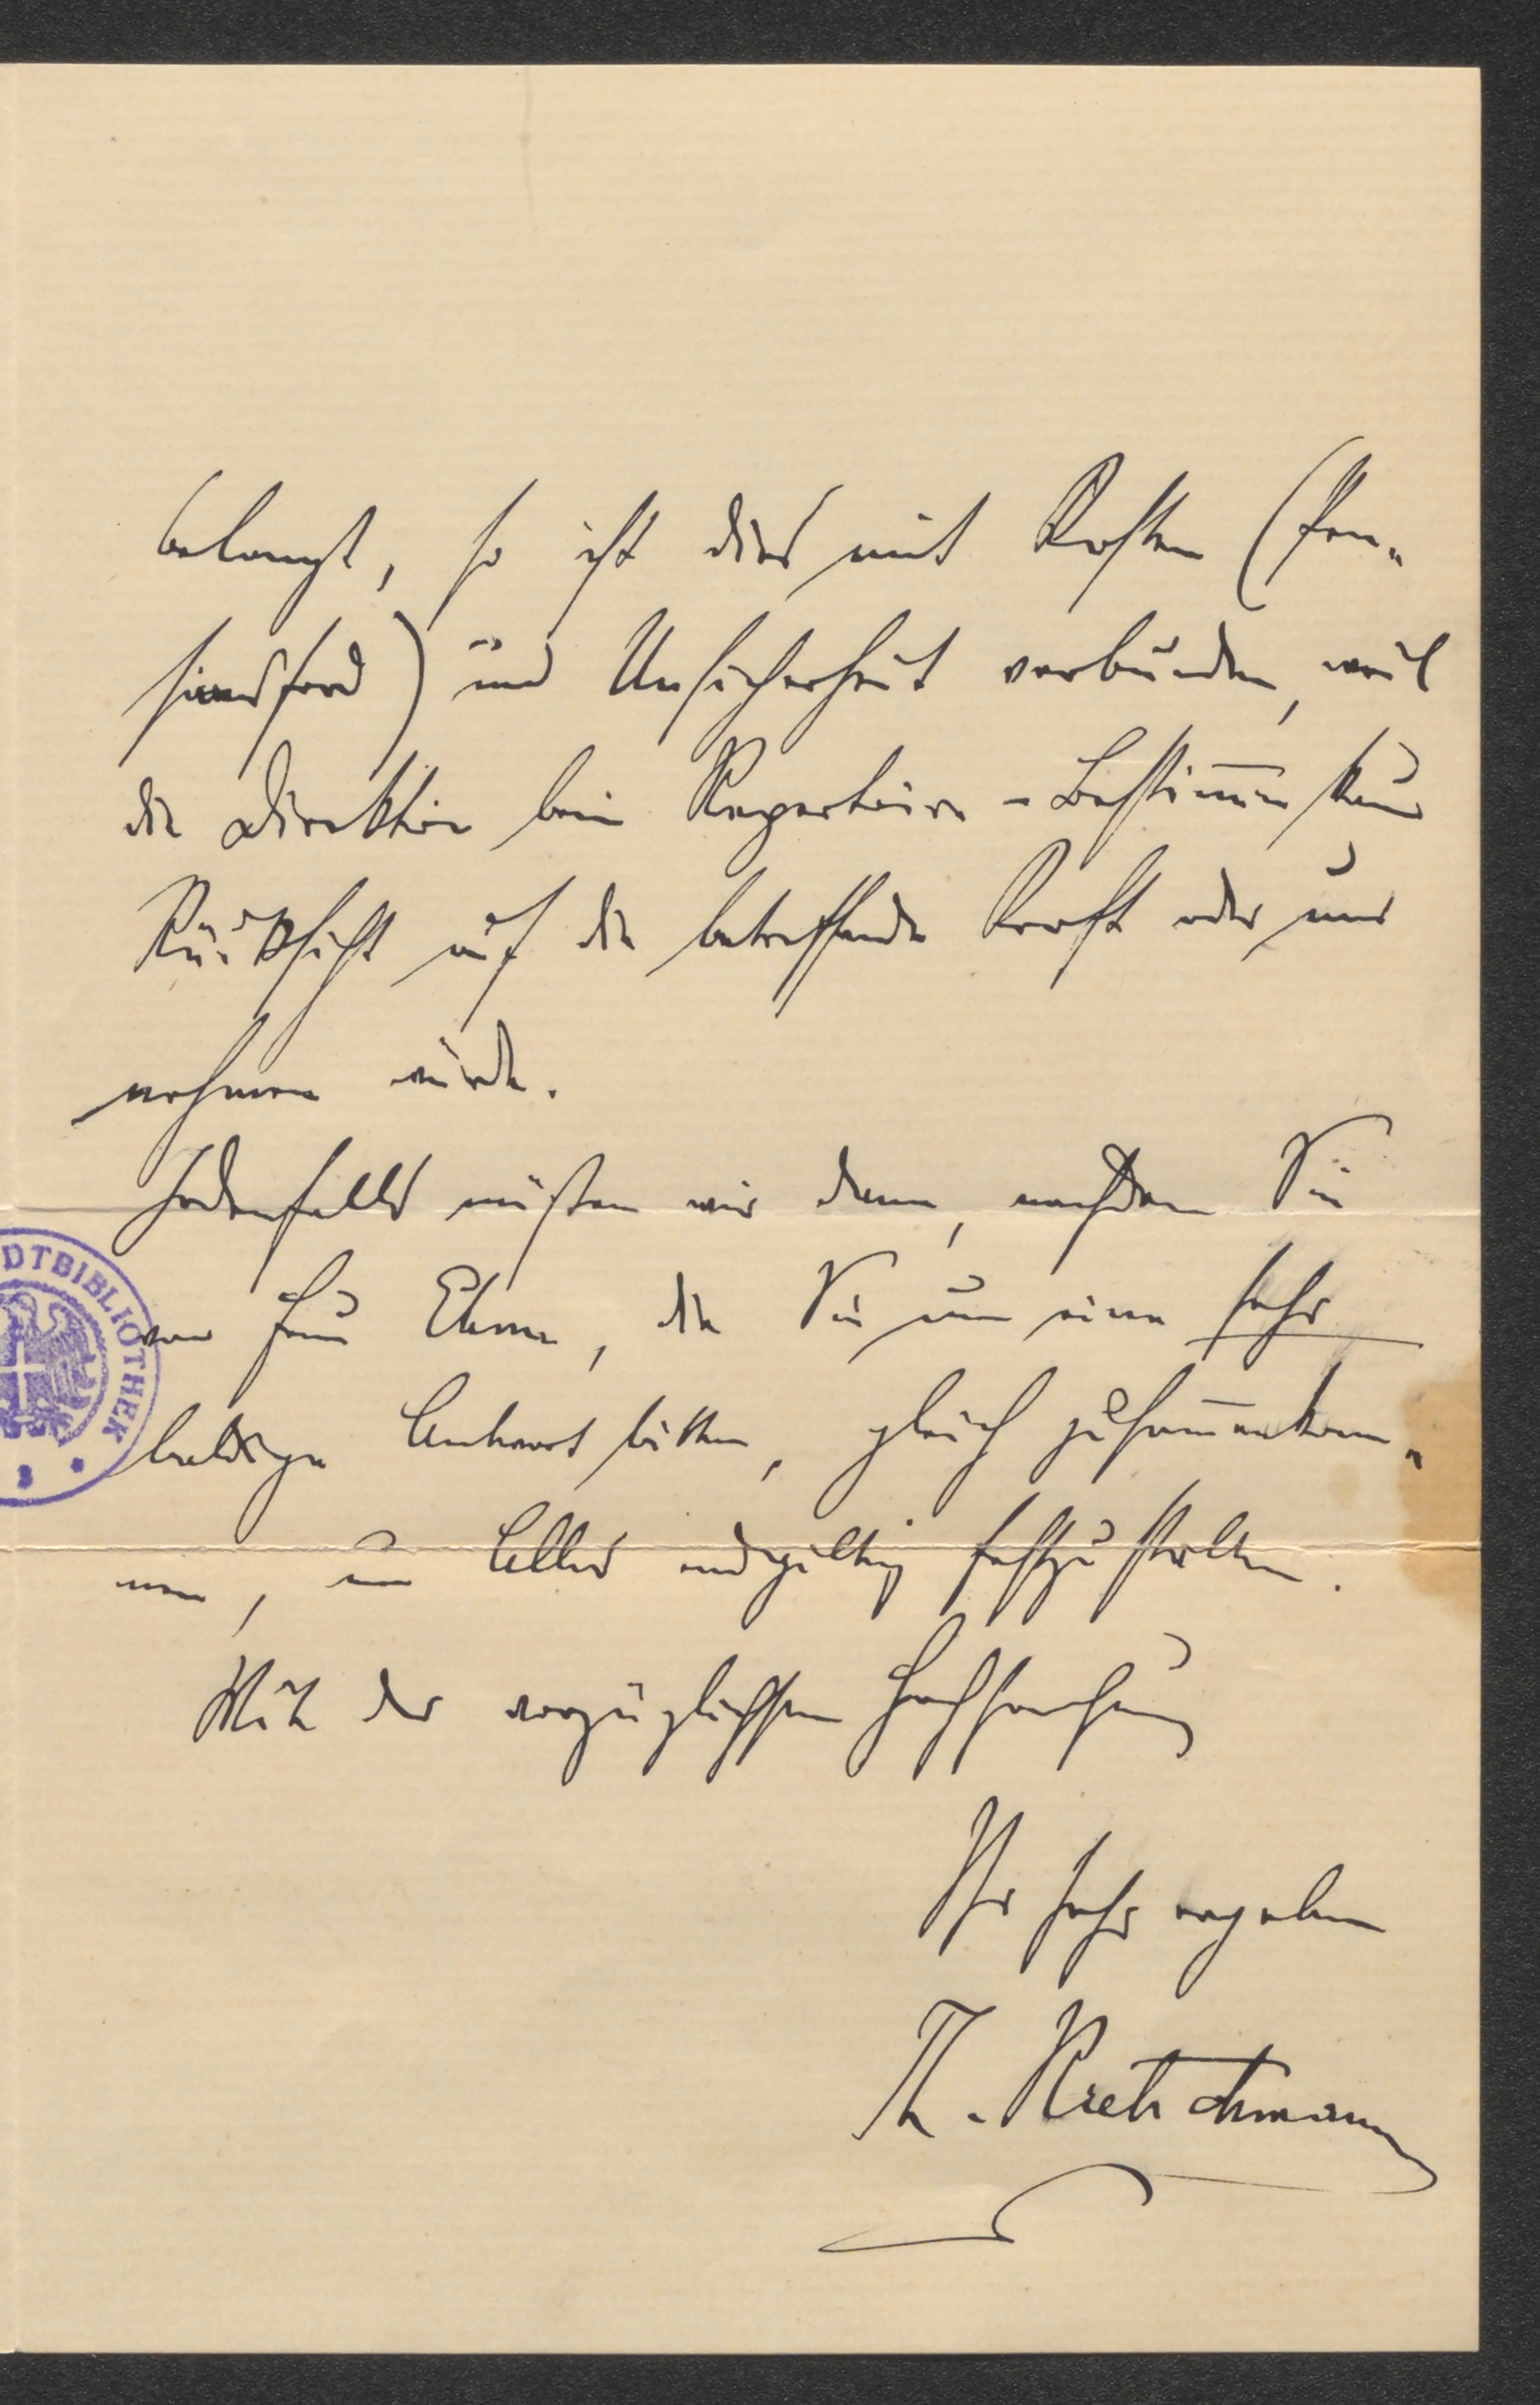 belangt, so ist dies mit Kosten (Pen„
sionsfond) und Unsicherheit verbunden, weil
die Direktion beim Repertoire-Bestimmen kaum
Rücksicht auf die betreffende Kraft oder uns
nehmen würde.
Jedenfalls müßten wir dann, nachdem Sie
von Frau Ehm, die Sie um eine sehr
baldige Antwort bitten, gleich zusam̅enkom„
men, um Alles endgiltig festzustellen.
Mit der vorzüglichsten Hochachtung
Ihr sehr ergebener
Th. Kretschmann
DTBIBLIOTHEK